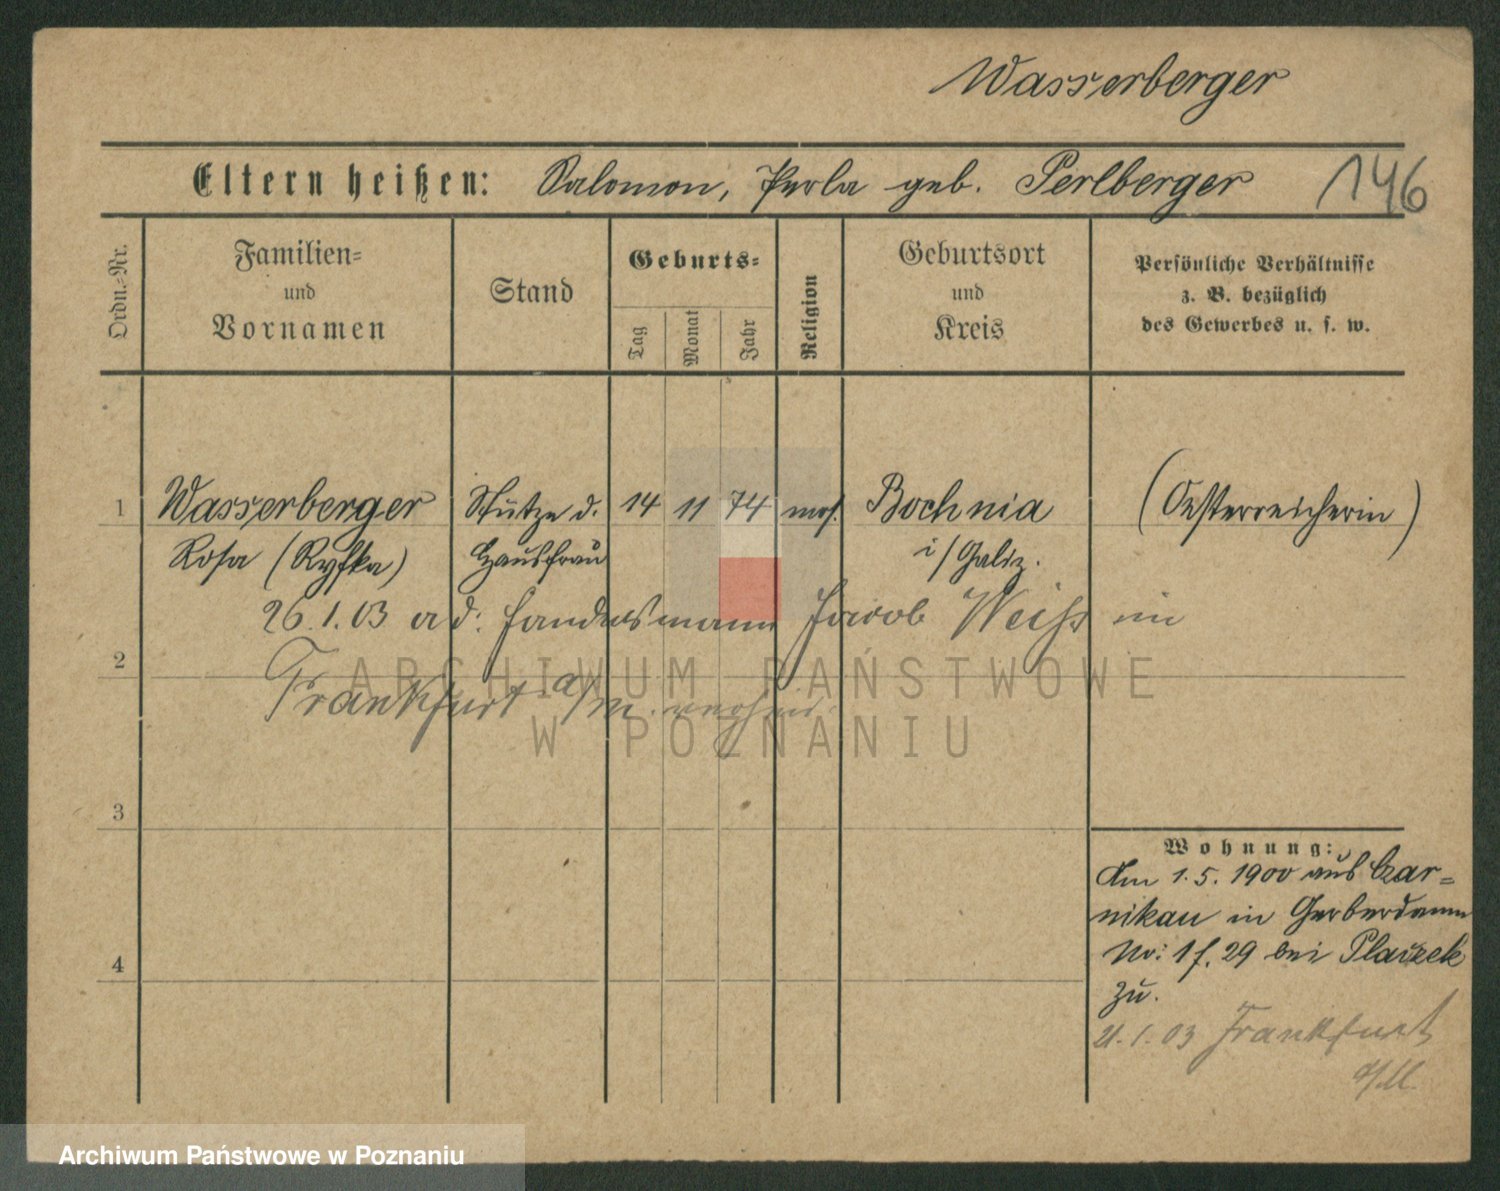 Wasserberger
Eltern heißen: Salomon, Perla geb. Perlberger 146
Ordn.-Nr.
Familien-
und
Vornamen
Stand
Geburts-
Tag
Monat
Jahr
Religion
Geburtsort
und
Kreis
Persönliche Verhältnisse
z. B. bezüglich
des Gewerbes u. s. w.
1 Wasserberger Stütze d. 14 11 74 mos. Bochnia (Oesterreicherin)
Rosa (Ryfka) Hausfrau i/Galiz.
26.1.03 a d. Handelsmann Jacob Weiss in
2
Frankfurt a/M.
3
Wohnung:
Am 1.5.1900 aus Czar-
nikau in Gerberdamm
No: 1 f. 29 bei Placzek
4
zu.
21.1.03 Frankfurt
a/M.
ARCHIWUM PAŃSTWOWE
W POZNANIU
Archiwum Państwowe w Poznaniu